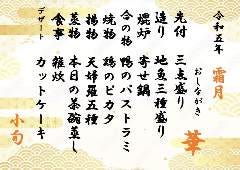 令和五年
霜月
おしながき
華
先付 三点盛り
造り 地魚三種盛り
焜炉 寄せ鍋
合の物 鴨のパストラミ
焼物 鶏のピカタ
揚物 天婦羅五種
蒸物 本日の茶碗蒸し
食事 雑炊
デザート カットケーキ
小旬